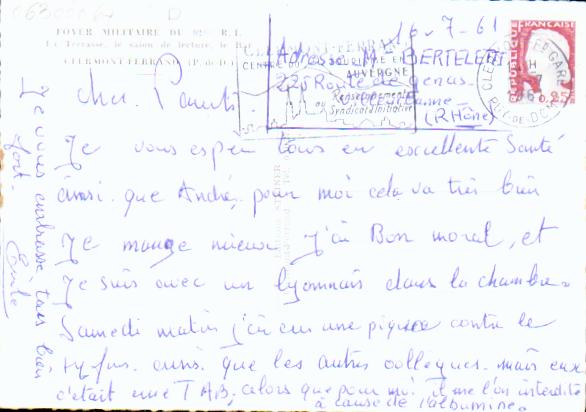 FOYER MILITAIRE DU 92e R. I.
La Terrasse, le salon de lecture, le
CLERMONT-FERRAND (P.-de-D.)
16-7-61
CLERMONT-FERRAND
CENTRE DU TOURISME EN
AUVERGNE
Renseignements
au Syndicat d'Initiative
Adresse M BERTELETTI
225 Route de genas
(RHône)
RÉPUBLIQUE FRANÇAISE
0,25
CLERMONT-FD GARE
PUY-DE-DOME
Cher Parents
Je vous espère tous en excellente Santé
ainsi que André, pour moi cela va très bien
Je mange mieux J'ai Bon moral, et
Je suis avec un lyonnais dans la chambre.
Samedi matin j'ai eu une piqure contre le
typhus. ainsi que les autres collegues. mais eux
c'était une TAB, alors que pour moi il me l'on interdite
à cause de l'albumine.
Je vous embrasse tous bien
fort